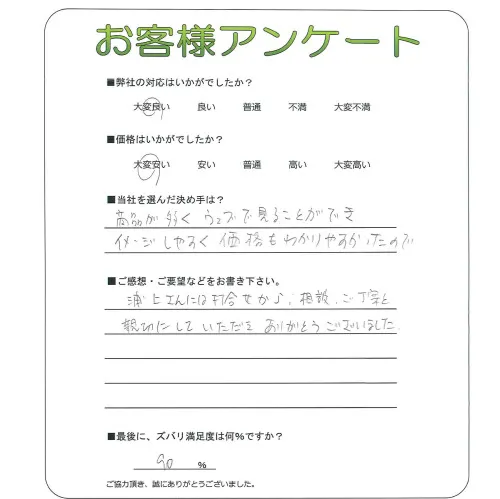 お客様アンケート
■弊社の対応はいかがでしたか？
大変良い 良い 普通 不満 大変不満
■価格はいかがでしたか？
大変安い 安い 普通 高い 大変高い
■当社を選んだ決め手は？
商品が多く ウェブで見ることができ
イメージしやすく 価格もわかりやすかったので
■ご感想・ご要望などをお書き下さい。
浦上さんには打合せから、相談、ご丁寧と
親切にしていただき ありがとうございました
■最後に、ズバリ満足度は何%ですか？
90 %
ご協力頂き、誠にありがとうございました。